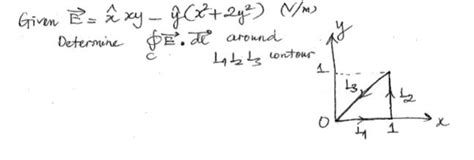 Given E⃗ = x̂ xy - ŷ (x² + 2y²) (V/m)
Determine ∮_C E⃗ . dl⃗ around
L₁ L₂ L₃ contour
y
1
L₃
L₂
0
L₁
1
x